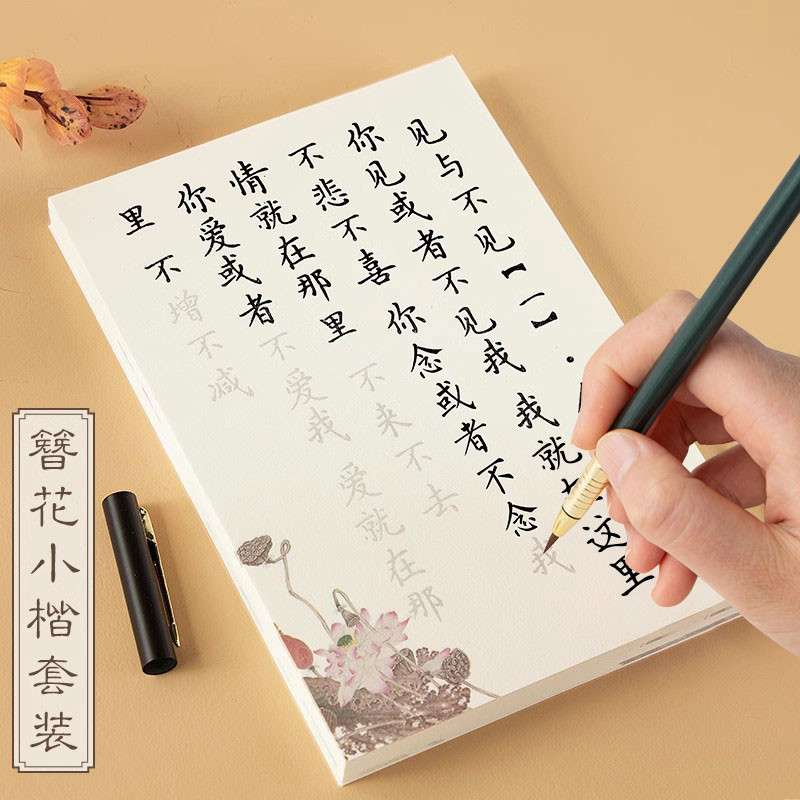 见与不见【一】·
你见或者不见我 我就在这里
不悲不喜 你念或者不念我
情就在那里 不来不去
你爱或者不爱我 爱就在那
里 不增不减
簪花小楷套装